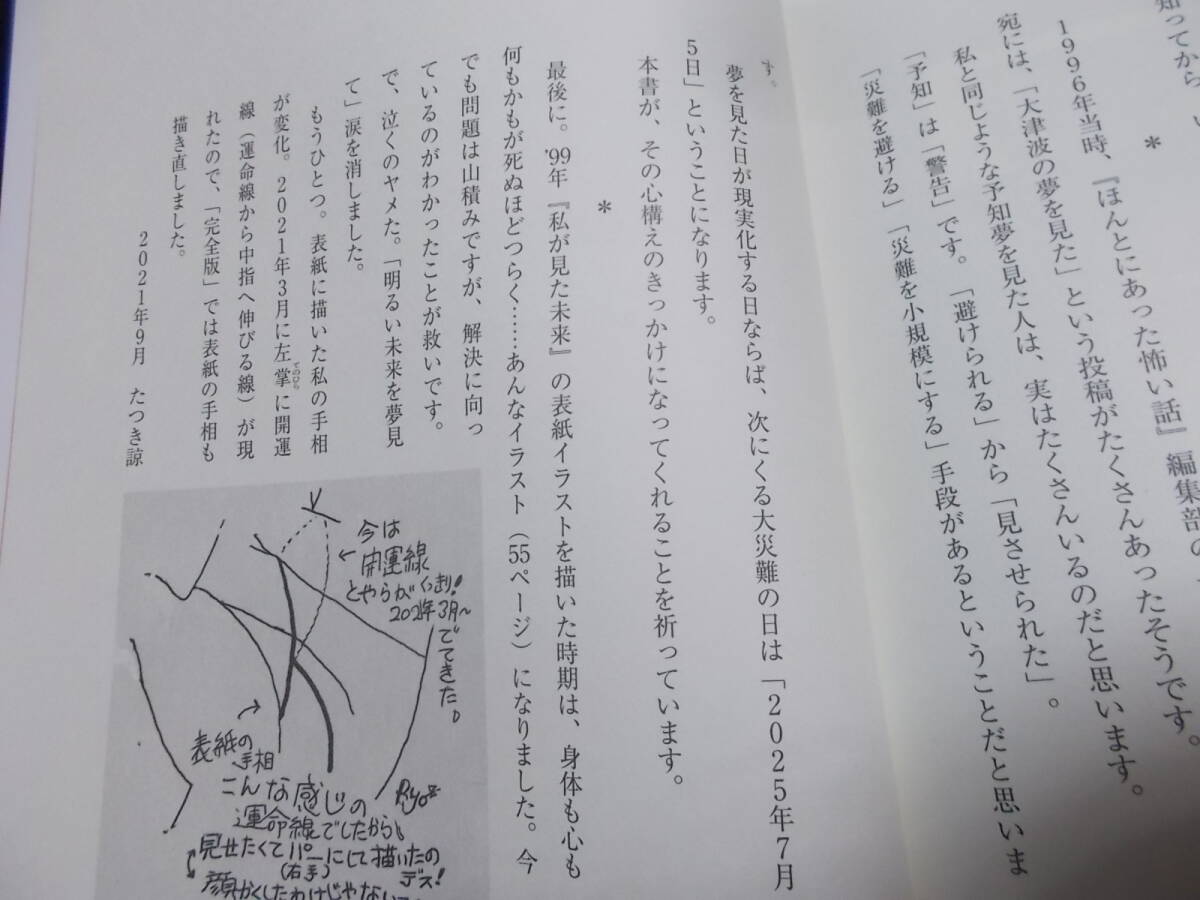 知ってから
＊
1996年当時、『ほんとにあった怖い話』編集部の
宛には、「大津波の夢を見た」という投稿がたくさんあったそうです。
私と同じような予知夢を見た人は、実はたくさんいるのだと思います。
「予知」は「警告」です。「避けられる」から「見させられた」。
「災難を避ける」「災難を小規模にする」手段があるということだと思いま
す。
夢を見た日が現実化する日ならば、次にくる大災難の日は「2025年7月
5日」ということになります。
本書が、その心構えのきっかけになってくれることを祈っています。
＊
最後に。'99年『私が見た未来』の表紙イラストを描いた時期は、身体も心も
何もかもが死ぬほどつらく……あんなイラスト（55ページ）になりました。今
でも問題は山積みですが、解決に向っ
ているのがわかったことが救いです。
で、泣くのヤメた。「明るい未来を夢見
て」涙を消しました。
もうひとつ。表紙に描いた私の手相
が変化。2021年3月に左掌に開運
てのひら
線（運命線から中指へ伸びる線）が現
れたので、「完全版」では表紙の手相も
描き直しました。
2021年9月　たつき諒
今は
開運線
とやらがくっきり!
2021年3月〜
でてきた。
表紙の
手相
こんな感じの
運命線でしたから
見せたくてパーにして描いたの
(右手)
デス!
顔かくしたわけじゃない
Ryo